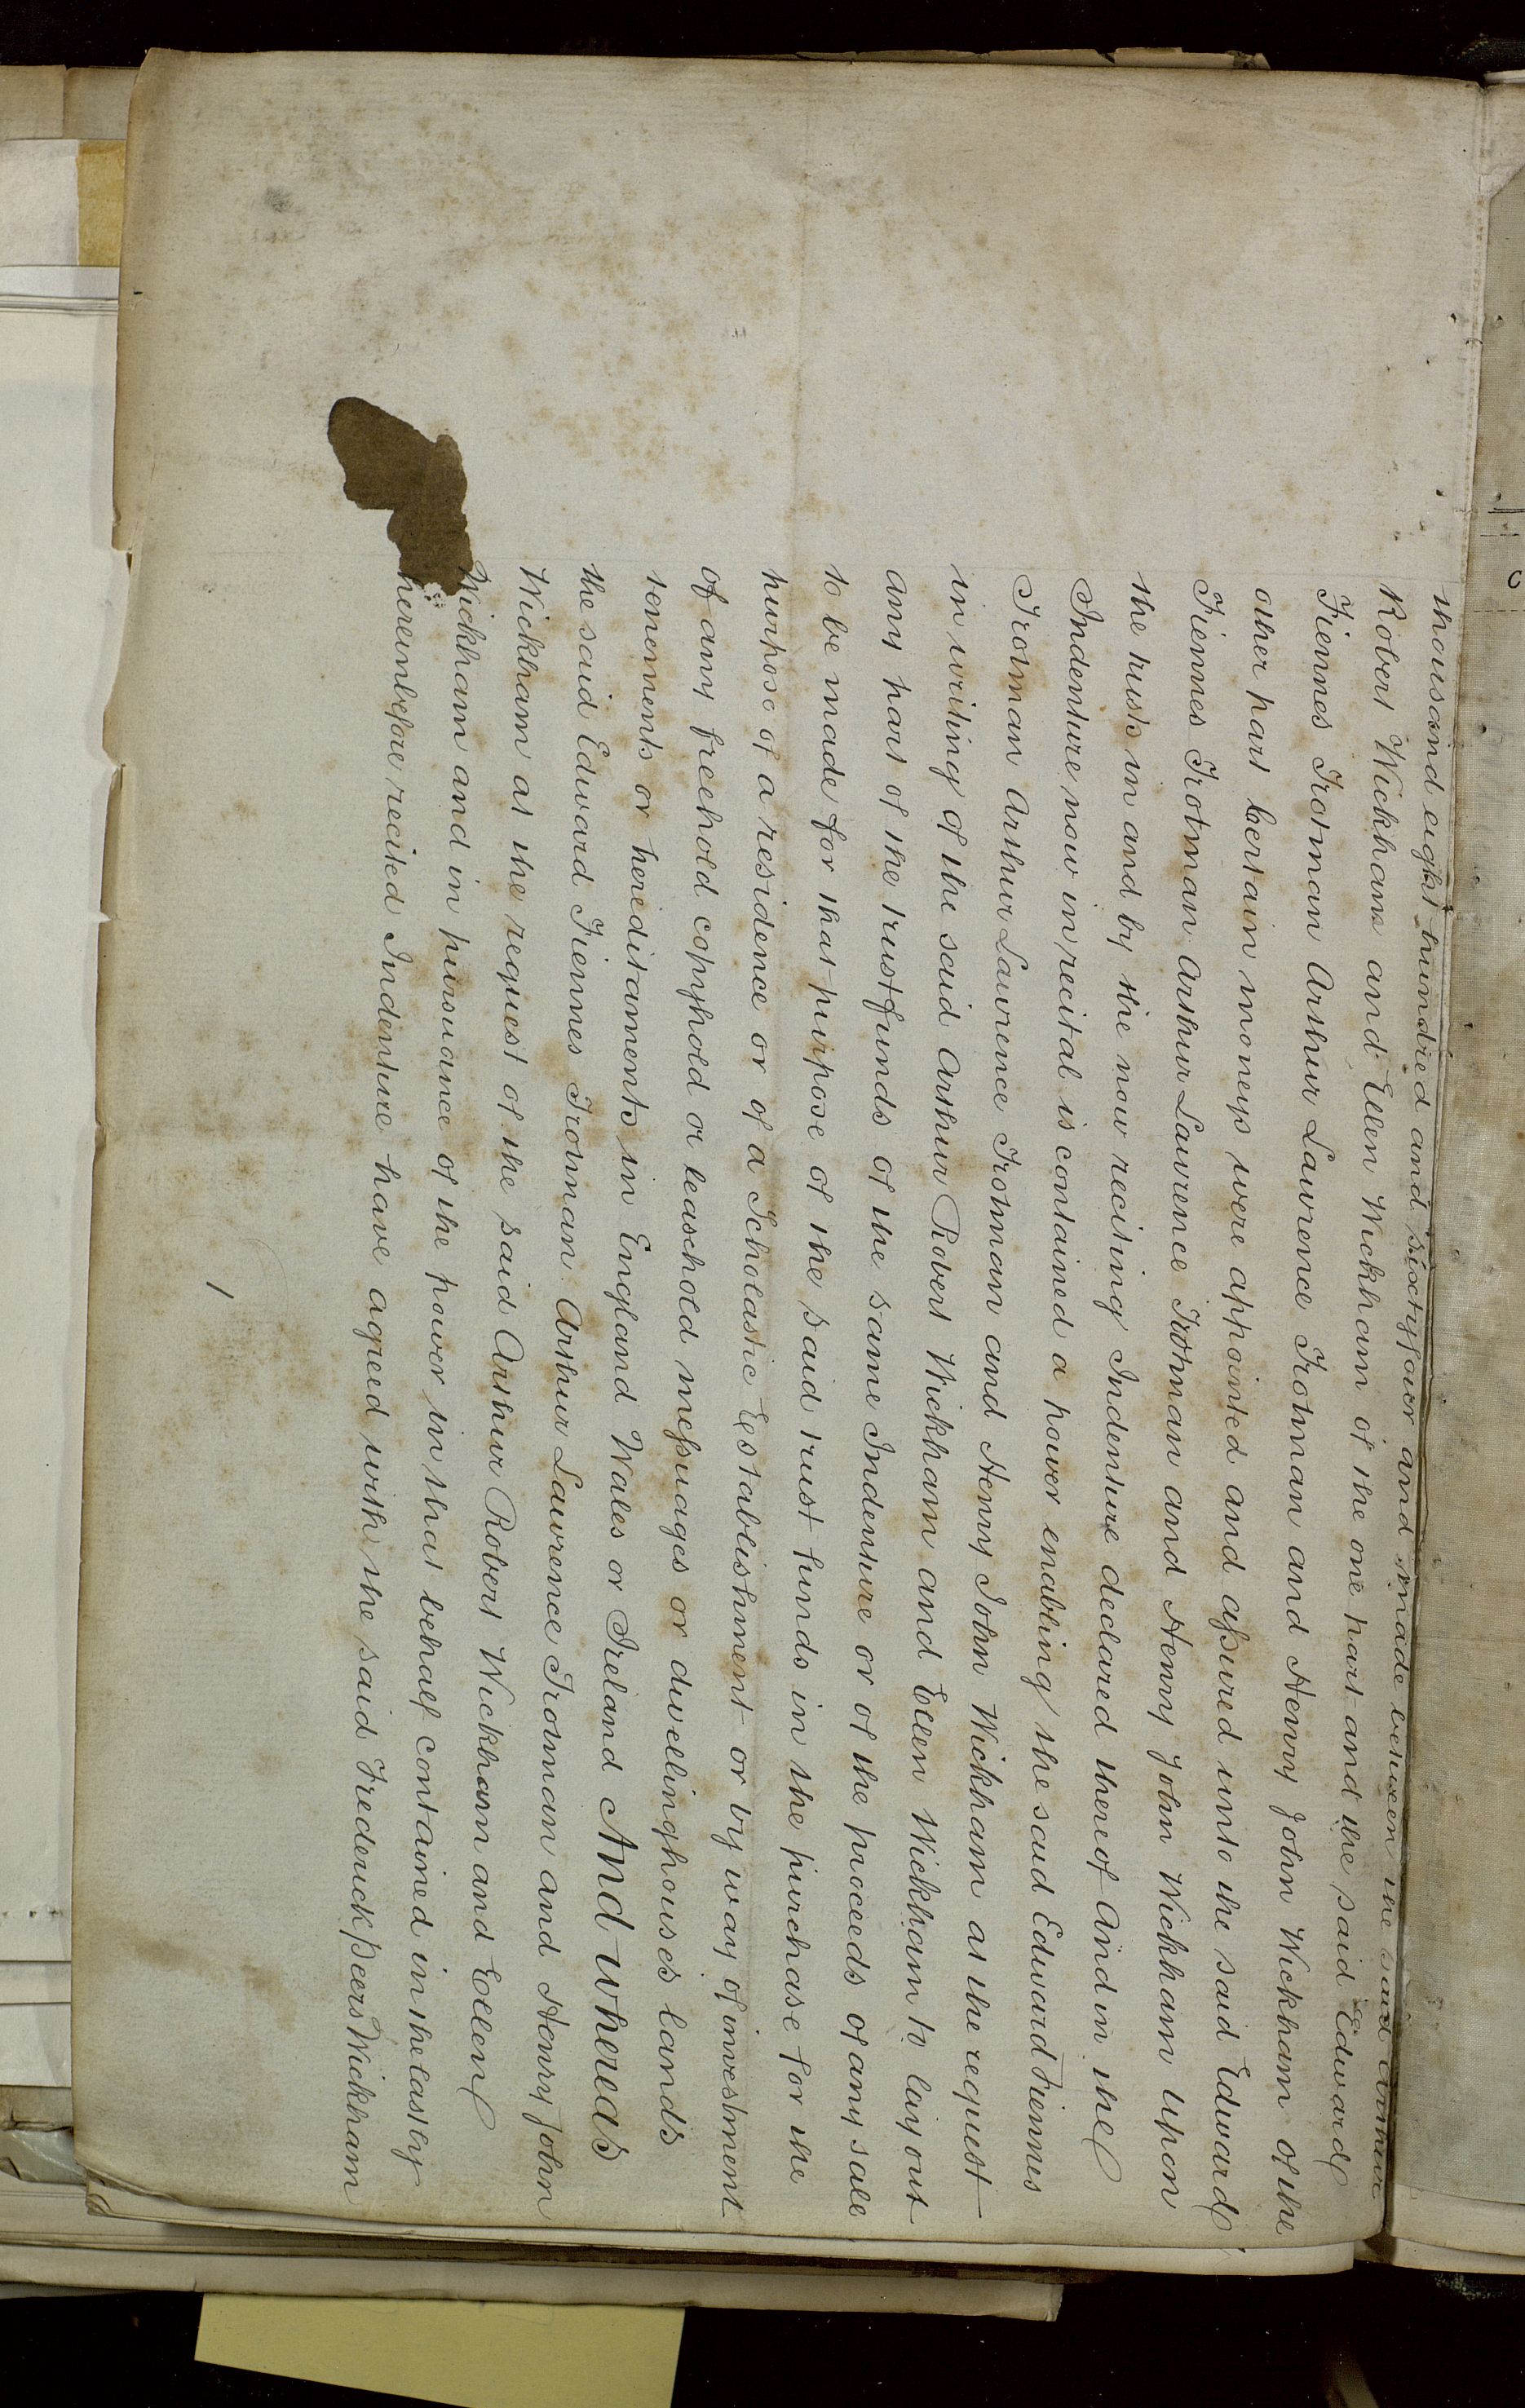 thousand eight hundred and sixtyfour and made between the said Arthur
Robert Wickham and Ellen Wickham of the one part and the said Edward
Fiennes Trotman Arthur Lawrence Trotman and Henry John Wickham of the
other part Certain moneys were appointed and assured unto the said Edward
Fiennes Trotman Arthur Lawrence Trotman and Henry John Wickham upon
the trusts in and by the now reciting Indenture declared thereof And in the
Indenture now in recital is contained a power enabling the said Edward Fiennes
Trotman Arthur Lawrence Trotman and Henry John Wickham at the request
in writing of the said Arthur Robert Wickham and Ellen Wickham to lay out
any part of the trust funds of the same Indenture or of the proceeds of any sale
to be made for that purpose of the said trust funds in the purchase for the
purpose of a residence or of a Scholastic Establishment or by way of investment
of any freehold copyhold or leasehold messuages or dwellinghouses lands
tenements or hereditaments in England Wales or Ireland And whereas
the said Edward Fiennes Trotman Arthur Lawrence Trotman and Henry John
Wickham at the request of the said Arthur Robert Wickham and Ellen
Wickham and in pursuance of the power in that behalf contained in the lastly
hereinbefore recited Indenture have agreed with the said Frederick Peers Wickham